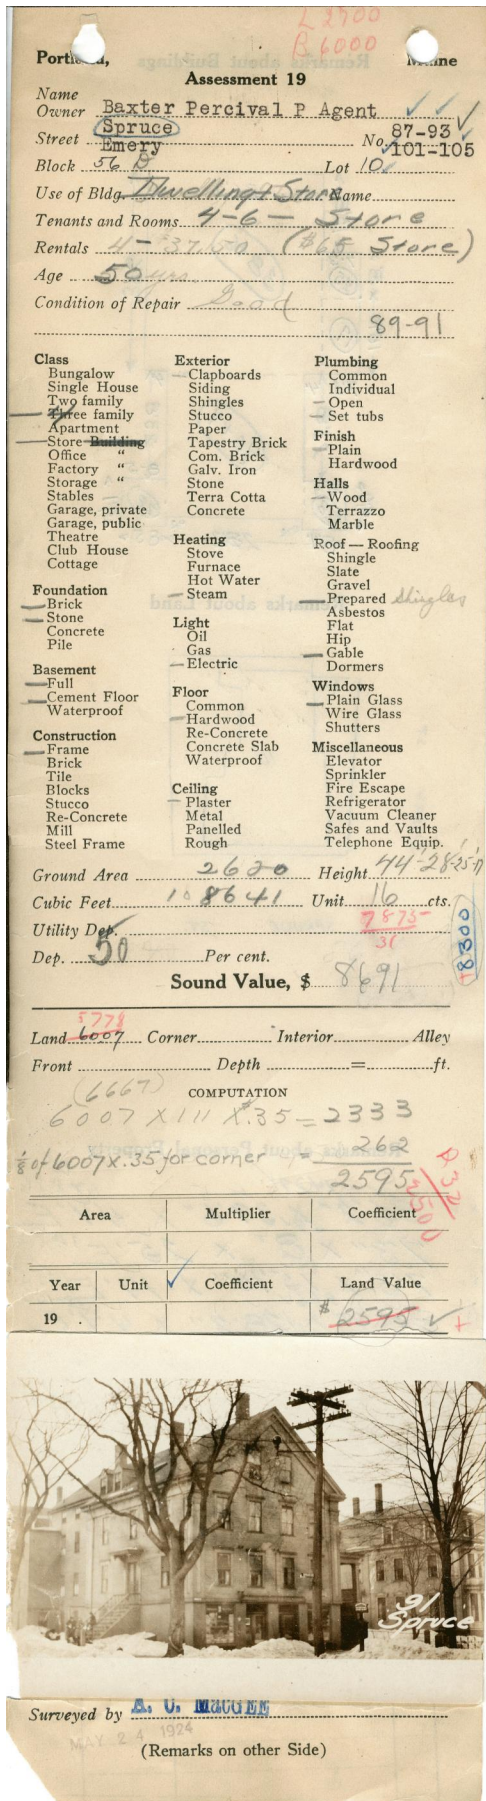 L 2700
B 6000
Portland, Maine
Assessment 19
Name
Owner Baxter Percival P Agent
Street Spruce No. 87-93
Emery 101-105
Block 56 D Lot 10
Use of Bldg. Dwelling + Store Name
Tenants and Rooms 4-6 - Store
Rentals 4- 37.50 ($65 Store)
Age 50 yrs.
Condition of Repair Good
89-91
Class
Bungalow
Single House
Two family
Three family
Apartment
Store Building
Office "
Factory "
Storage "
Stables
Garage, private
Garage, public
Theatre
Club House
Cottage
Foundation
Brick
Stone
Concrete
Pile
Basement
Full
Cement Floor
Waterproof
Construction
Frame
Brick
Tile
Blocks
Stucco
Re-Concrete
Mill
Steel Frame
Exterior
Clapboards
Siding
Shingles
Stucco
Paper
Tapestry Brick
Com. Brick
Galv. Iron
Stone
Terra Cotta
Concrete
Heating
Stove
Furnace
Hot Water
Steam
Light
Oil
Gas
Electric
Floor
Common
Hardwood
Re-Concrete
Concrete Slab
Waterproof
Ceiling
Plaster
Metal
Panelled
Rough
Plumbing
Common
Individual
Open
Set tubs
Finish
Plain
Hardwood
Halls
Wood
Terrazzo
Marble
Roof — Roofing
Shingle
Slate
Gravel
Prepared Shingles
Asbestos
Flat
Hip
Gable
Dormers
Windows
Plain Glass
Wire Glass
Shutters
Miscellaneous
Elevator
Sprinkler
Fire Escape
Refrigerator
Vacuum Cleaner
Safes and Vaults
Telephone Equip.
Ground Area 2620 Height 44-28-25-17
Cubic Feet 108641 Unit 16 cts.
Utility Dep. 7875
31
Dep. 50 Per cent.
+8300
Sound Value, $ 8691
5778
Land 6007 Corner Interior Alley
Front Depth = ft.
(6667)
COMPUTATION
6007 X 111 X .35 = 2333
1/8 of 6007 x .35 for corner = 262
2595
2500
Area Multiplier Coefficient
Year Unit Coefficient Land Value
19 $ 2595
91
Spruce
Surveyed by A. C. MacGEE
MAY 24 1924
(Remarks on other Side)